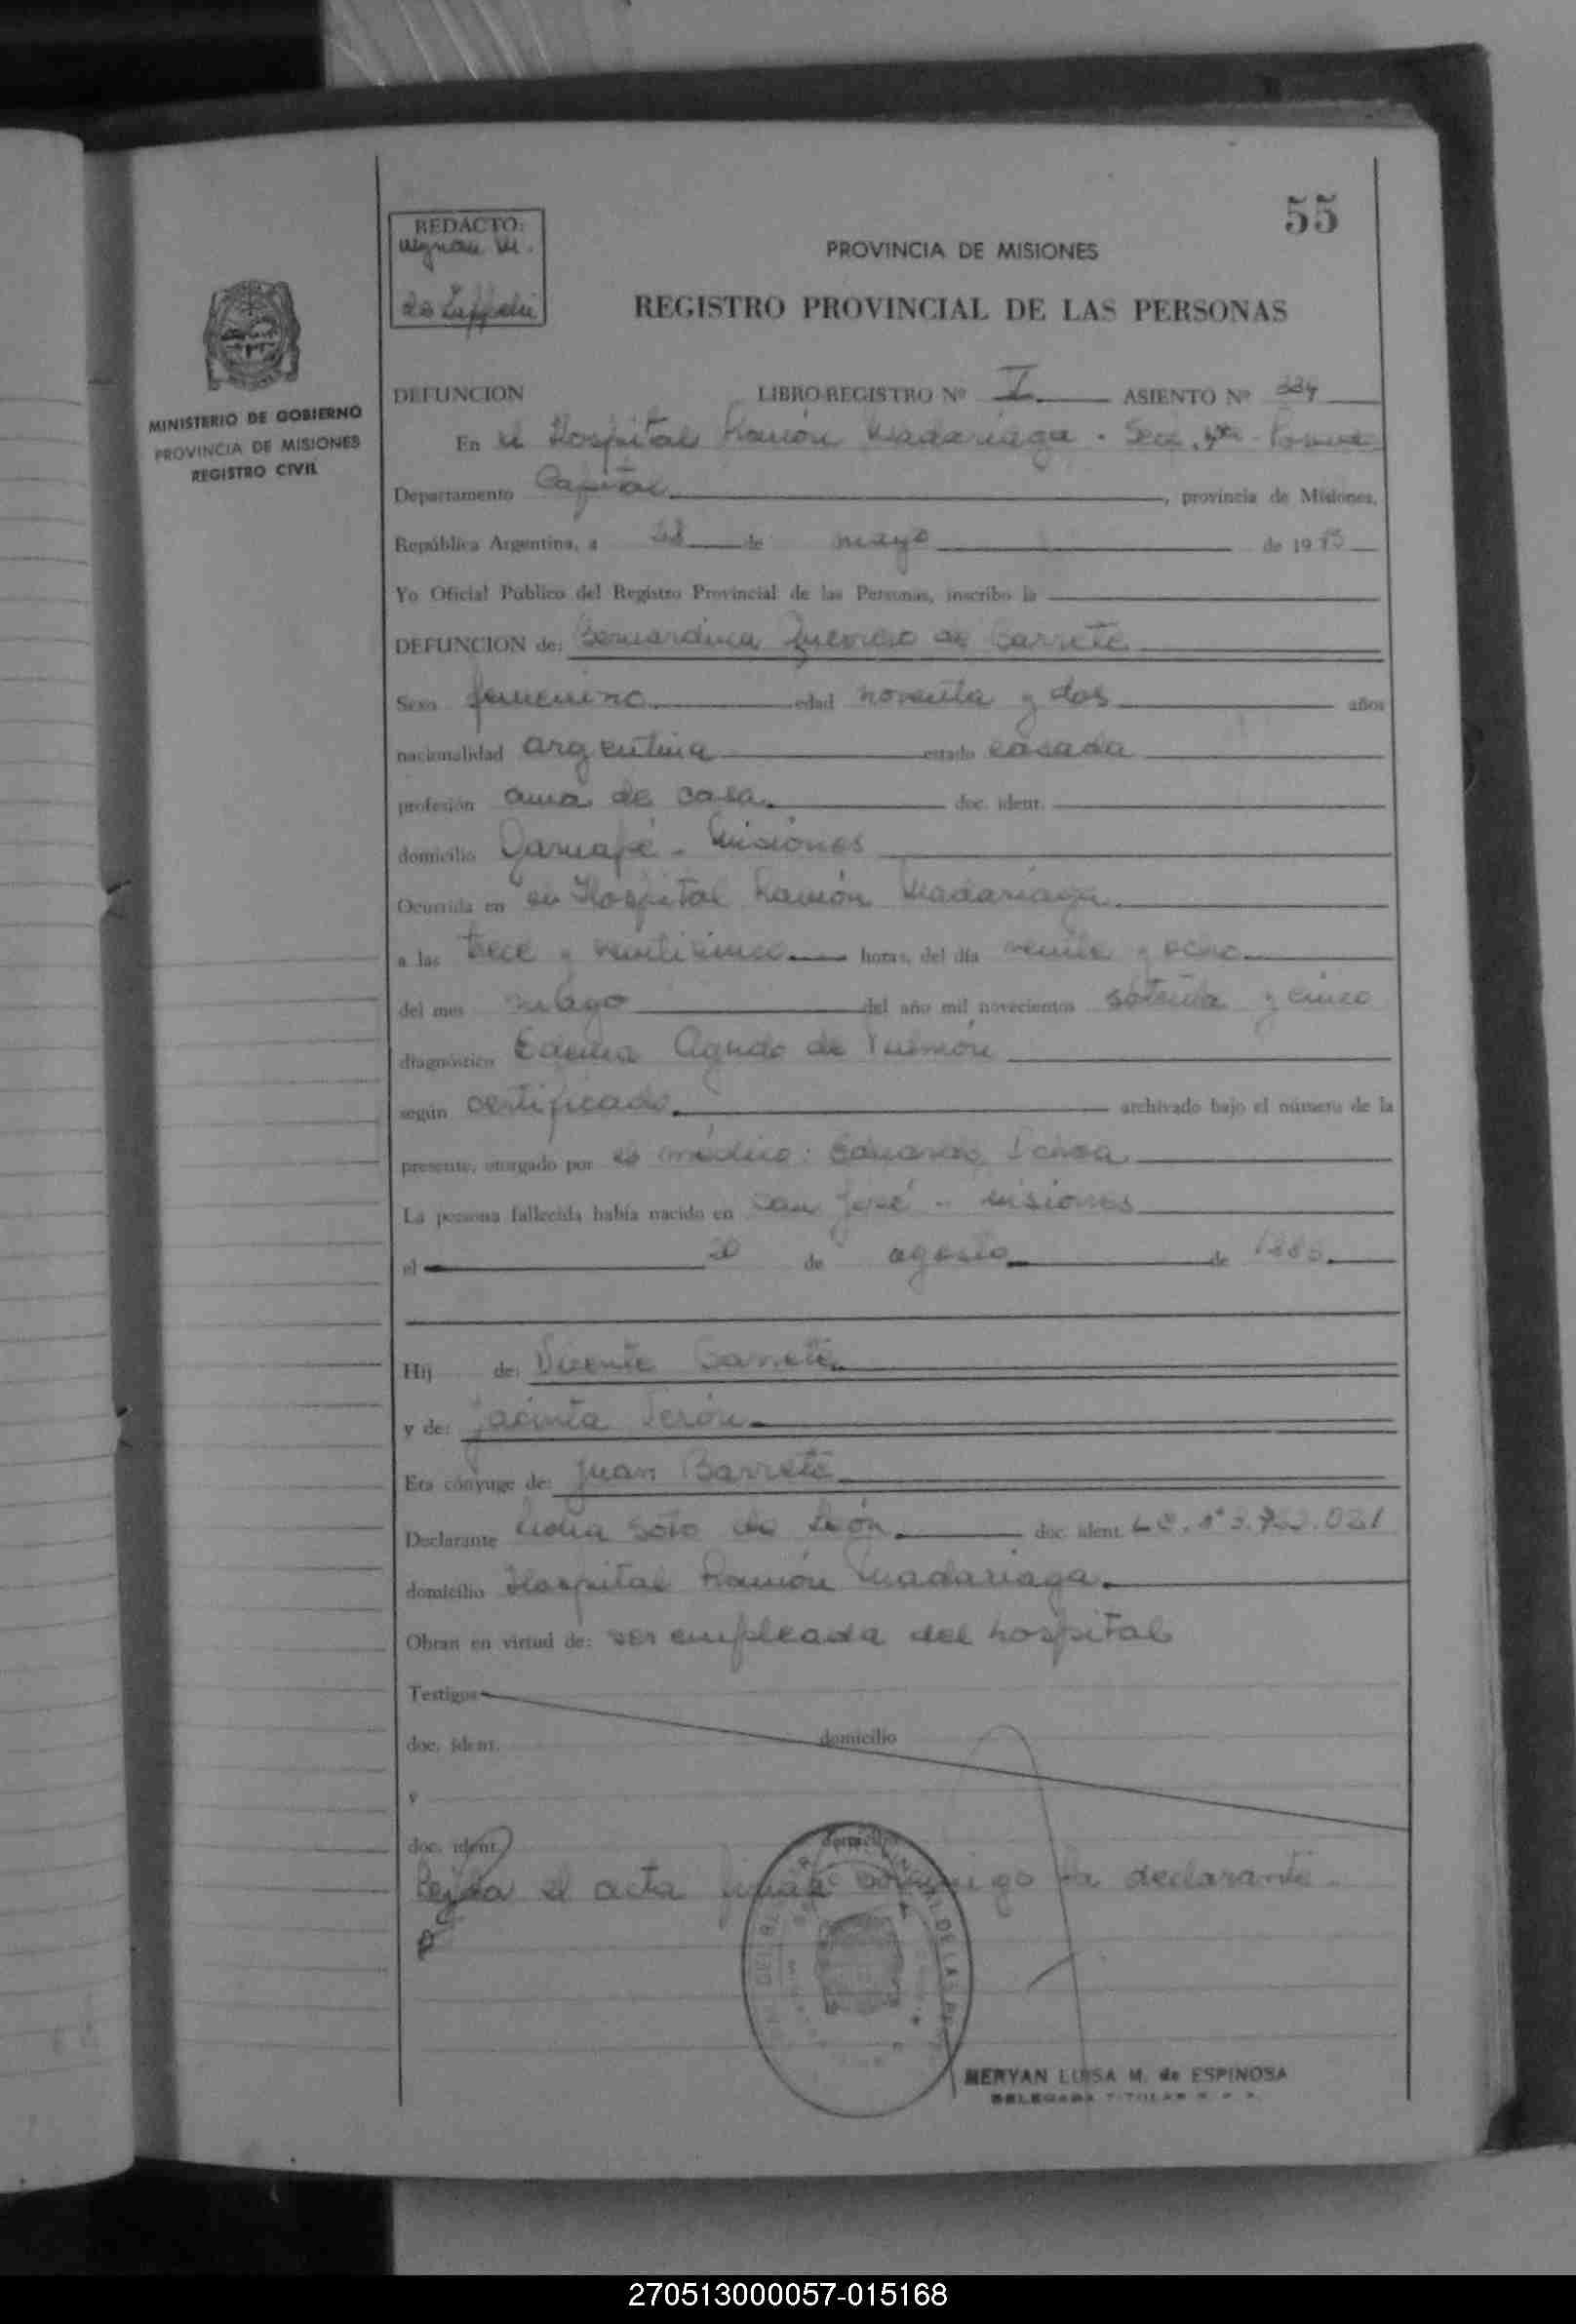 55
REDACTO:
PROVINCIA DE MISIONES
REGISTRO PROVINCIAL DE LAS PERSONAS
MINISTERIO DE GOBIERNO
PROVINCIA DE MISIONES
REGISTRO CIVIL
DEFUNCION LIBRO-REGISTRO Nº I ASIENTO Nº 334
En el Hospital Ramón Madariaga - Secc.
Departamento Capital, provincia de Misiones,
República Argentina, a 28 de mayo de 1975
Yo Oficial Público del Registro Provincial de las Personas, inscribo la
DEFUNCION de: Bernardina de Barrete
Sexo femenino edad noventa y dos años
nacionalidad argentina estado casada
profesión ama de casa doc. ident.
domicilio Garuapé - Misiones
Ocurrida en en Hospital Ramón Madariaga
a las trece y veinticinco horas, del día veinte y ocho
del mes mayo del año mil novecientos setenta y cinco
diagnóstico Edema Agudo de Pulmón
según certificado archivado bajo el número de la
presente, otorgado por el médico: Eduardo
La persona fallecida había nacido en San José - Misiones
el 20 de agosto de 1883
Hij de: Vicente Barrete
y de: Jacinta Terón
Era cónyuge de: Juan Barrete
Declarante Lidia Soto de León doc. ident. L.C. nº 3.722.021
domicilio Hospital Ramón Madariaga
Obran en virtud de: ser empleada del hospital
Testigos
doc. ident. domicilio
y
doc. ident. domicilio
Leída el acta firma conmigo la declarante.
MERYAN LUISA M. de ESPINOSA
DELEGADA TITULAR
270513000057-015168